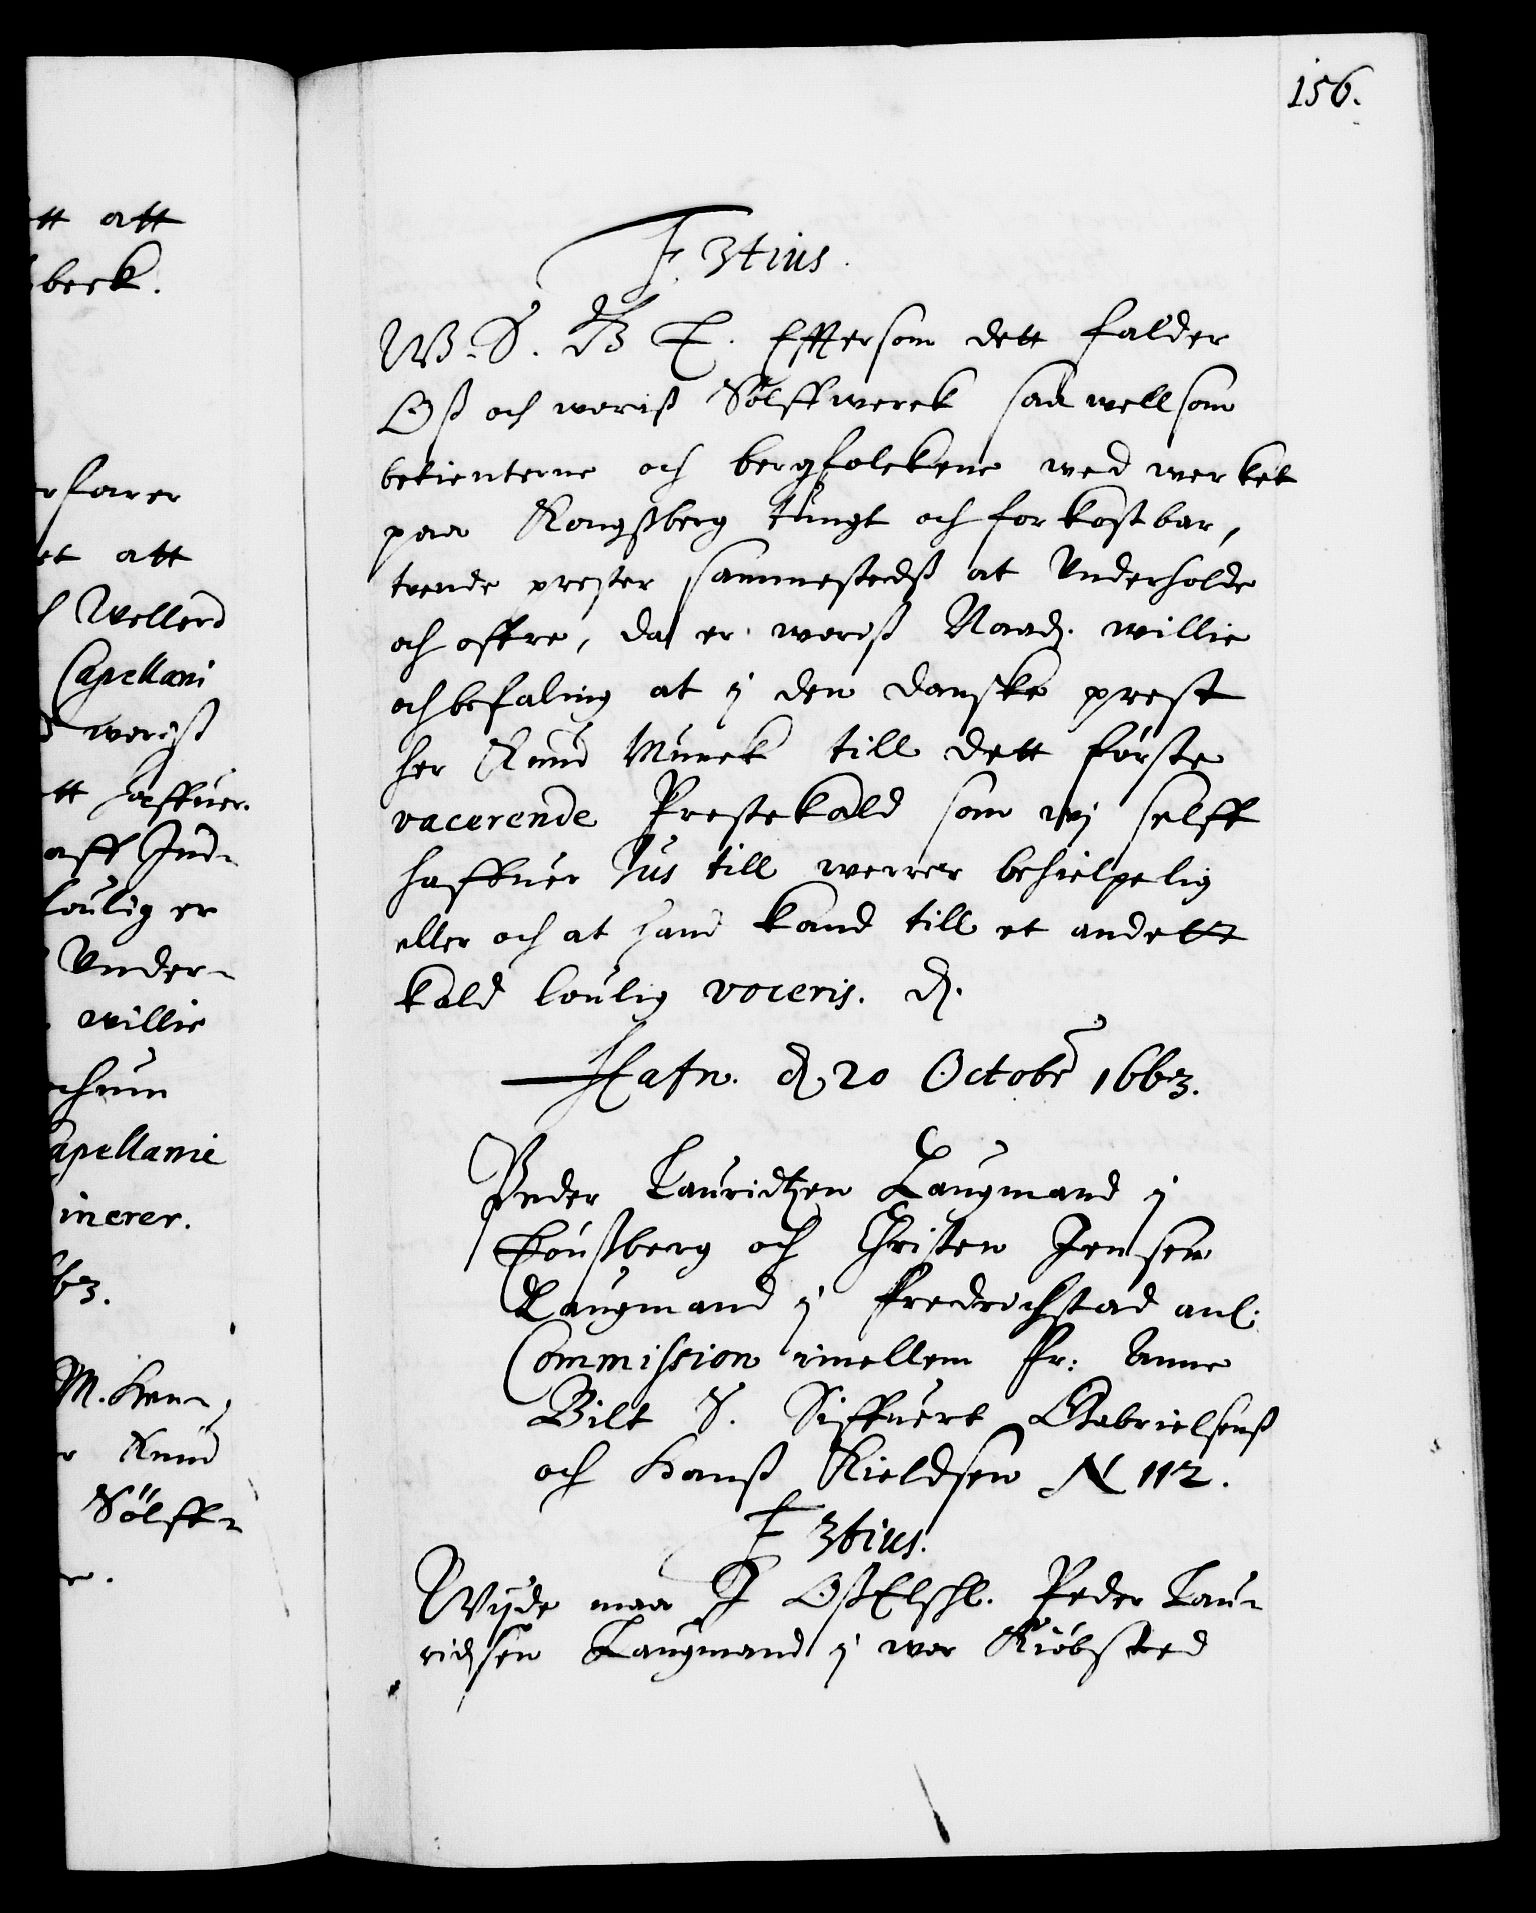 tt att
beek.
rfarer
et att
Wellerd
Capellani
d woriß
tt haffuer.
aff Ind-
loulig er
Vnder-
willie
chrun
apellanie
inerer.
63.
M. Hen-
r Knud
Sölff-
156.
F. 3tius.
W. S. G T. Efftersom dett falder
Oß och woriß Sölffwerck saa well som
betienterne och bergfolckene wed wercket
paa Kongßberg tungt och for kostbar,
tvende prester sammestedß at Vnderholde
och offre, da er woriß Naad. willie
och befaling at i den danske prest
her Knud Munck till dett förste
vacerende Prestekald som wj selff
haffuer Jus till werrer behielpelig
eller och at hand kand till et andett
kald loulig voceris. d.
Hafn. d. 20 Octobr 1663.
Peder Lauridtzen Laugmand i
Tönßberg och Christen Jensen
Laugmand i Fredrichstad anl.
Commission imellem Fr: Anne
Bilt S. Siffuert Gabrielsenß
och Hanß Kieldsen N 112.
F 3tius.
Wijde maa I Oß Elschl. Peder Lau-
ridsen Laugmand i wor Kiöbsted